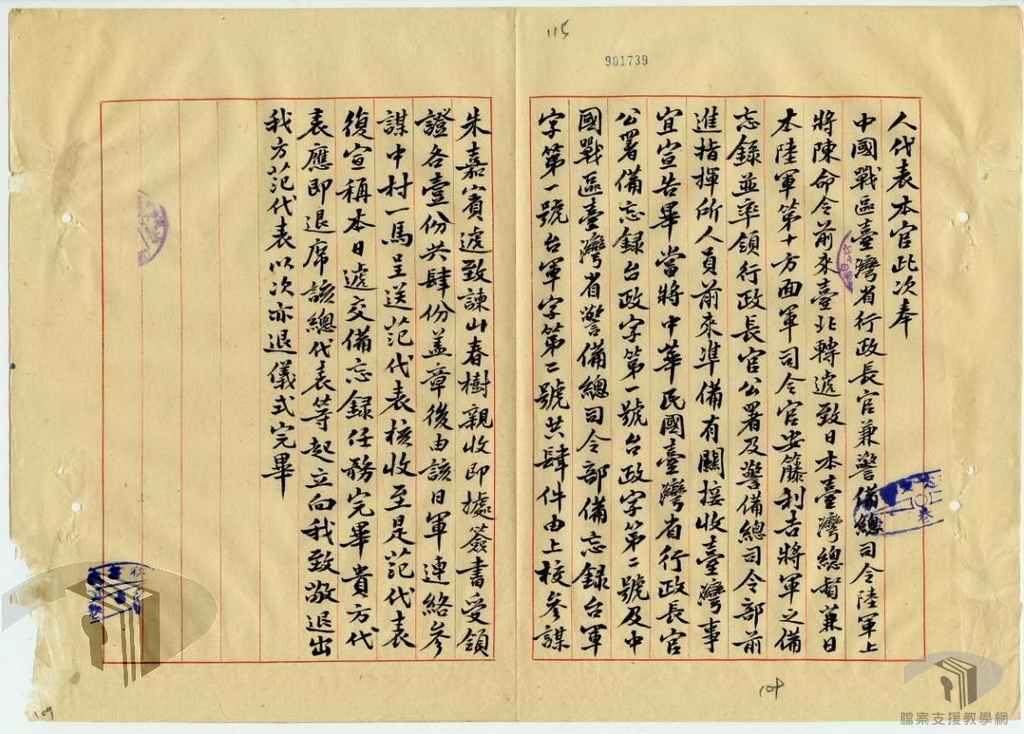 115
901739
人代表本官此次奉
中國戰區臺灣省行政長官兼警備總司令陸軍上
將陳命令前來臺北轉遞致日本臺灣總督兼日
本陸軍第十方面軍司令官安籐利吉將軍之備
忘錄並率領行政長官公署及警備總司令部前
進指揮所人員前來準備有關接收臺灣事
宜宣告畢當將中華民國臺灣省行政長官
公署備忘録台政字第一號台政字第二號及中
國戰區臺灣省警備總司令部備忘録台軍
字第一號台軍字第二號共肆件由上校參謀
朱嘉賓遞致諫山春樹親收即據簽書受領
證各壹份共肆份盖章後由該日軍連絡參
謀中村一馬呈送范代表核收至是范代表
復宣稱本日遞交備忘録任務完畢貴方代
表應即退席該總代表等起立向我致敬退出
我方范代表以次亦退儀式完畢
108
109
檔案支援教學網